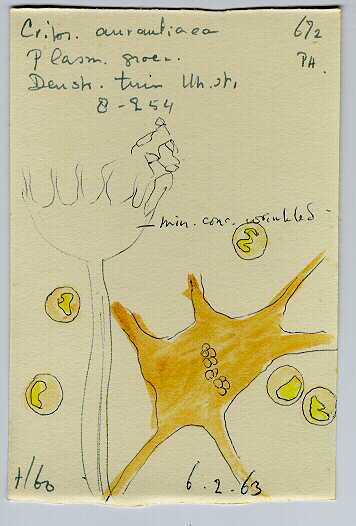 Cribr. aurantiaca 672
Plasm. groen. PA.
Denstr. tuin Uh.st.
8-254
min. conc. wrinkled
H/60 6.2.63